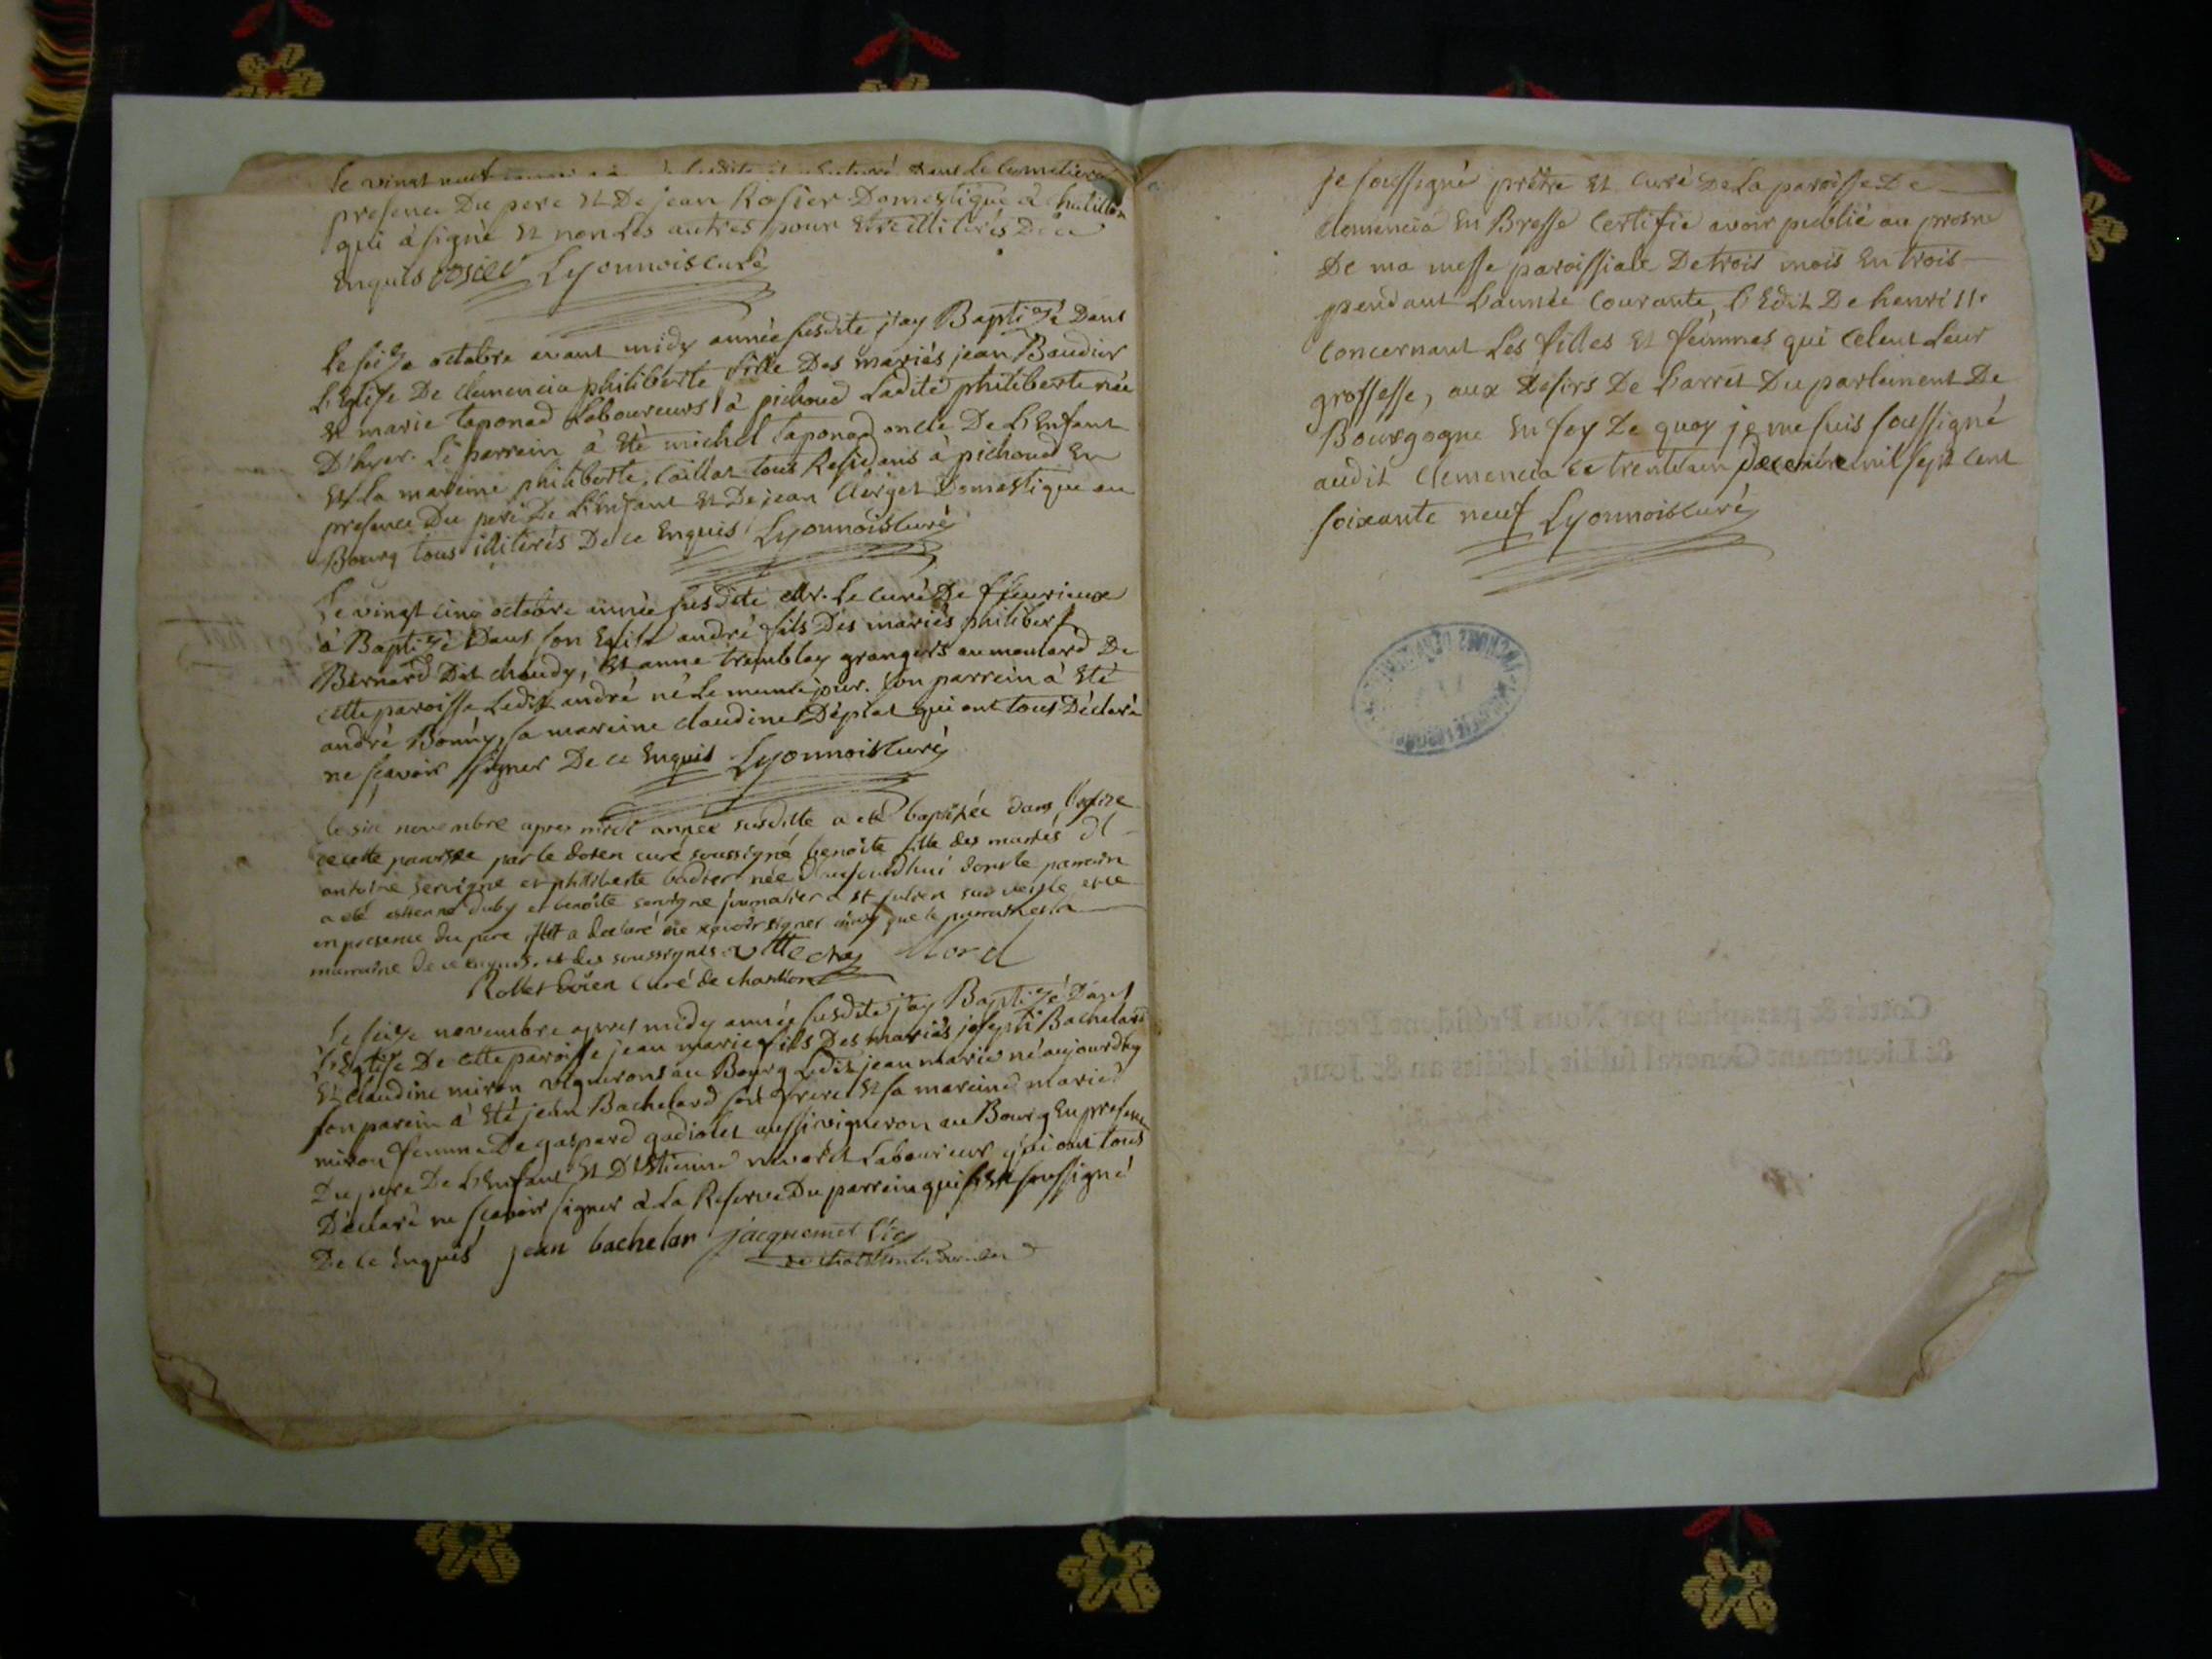 le vingt neuf dans le cimetiere
presence Du pere Et De jean Rosier Domestique à chatillon
qui à signé Et non Les autres pour Etre illiterés De ce
Enquis rosier Lyonnois curé
Le seize octobre avant midy année susdite j'ay Baptizé Dans
L'Eglise De clemencia philiberte fille Des mariés jean Baudier
Et marie taponad Laboureurs à pichoud Ladite philiberte née
D'hyer. Le parrein à Eté michel taponad oncle De L'Enfant
Et La mareine philiberte Caillat tous Residans à pichoud En
presence Du pere De L'Enfant Et De jean Clerget Domestique au
Bourg tous illiterés De ce Enquis Lyonnois curé
Le vingt cinq octobre année susdite Mr. Le curé De ffleurieux
à Baptizé Dans son Eglise andré fils Des mariés philibert
Bernard Dit chaudy, Et anne tremblay grangers au moulard De
cette paroisse Ledit andré né Le meme jour. son parrein à Eté
andré Bonny, sa mareine claudine Déplat qui ont tous Déclaré
ne sçavoir signer De ce Enquis Lyonnois curé
le six novembre apres midi année susditte a eté baptisée dans l'eglise
de cette paroisse par le doien curé soussigné benoite fille des mariés
antoine servigne et philiberte badier née d'aujourdhui dont le parrain
a eté estienne duby et benoite servigne journalier a st julien sur veyle
en presence du pere a declaré ne sçavoir signer ainsy que le parrain et la
marraine de ce enquis. et des soussignés
Rollet doïen curé de chatillon
Le seize novembre apres midy année susdite j'ay Baptizé Dans
L'Eglise De cette paroisse jean marie fils Des mariés joseph Bachelard
Et claudine miron vignerons au Bourg Ledit jean marie né aujourdhuy
son parein à Eté jean Bachelard son frere Et sa mareine marie
miron femme De gaspard gadiolet aussi vigneron au Bourg En presence
Du pere De L'Enfant Et D'Etienne Laboureur qui ont tous
Déclaré ne sçavoir signer à La Reserve Du parrein qui s'Est soussigné
De ce Enquis jean bachelar jacquemet vic
je soussigné prêtre Et curé De La paroisse De
clemencia En Bresse Certifie avoir publié au prosne
De ma messe paroissiale De trois mois En trois
pendant L'année Courante, l'Edit De henri II
Concernant Les filles Et femmes qui Celent Leur
grossesse, aux desirs De L'arret Du parlement De
Bourgogne En foy De quoy je me suis soussigné
audit clemencia ce trente un Decembre mil sept cent
soixante neuf Lyonnois curé
Cottés & paraphés par Nous Président Premier
& Lieutenant General susdit, lesdits an & Jour,